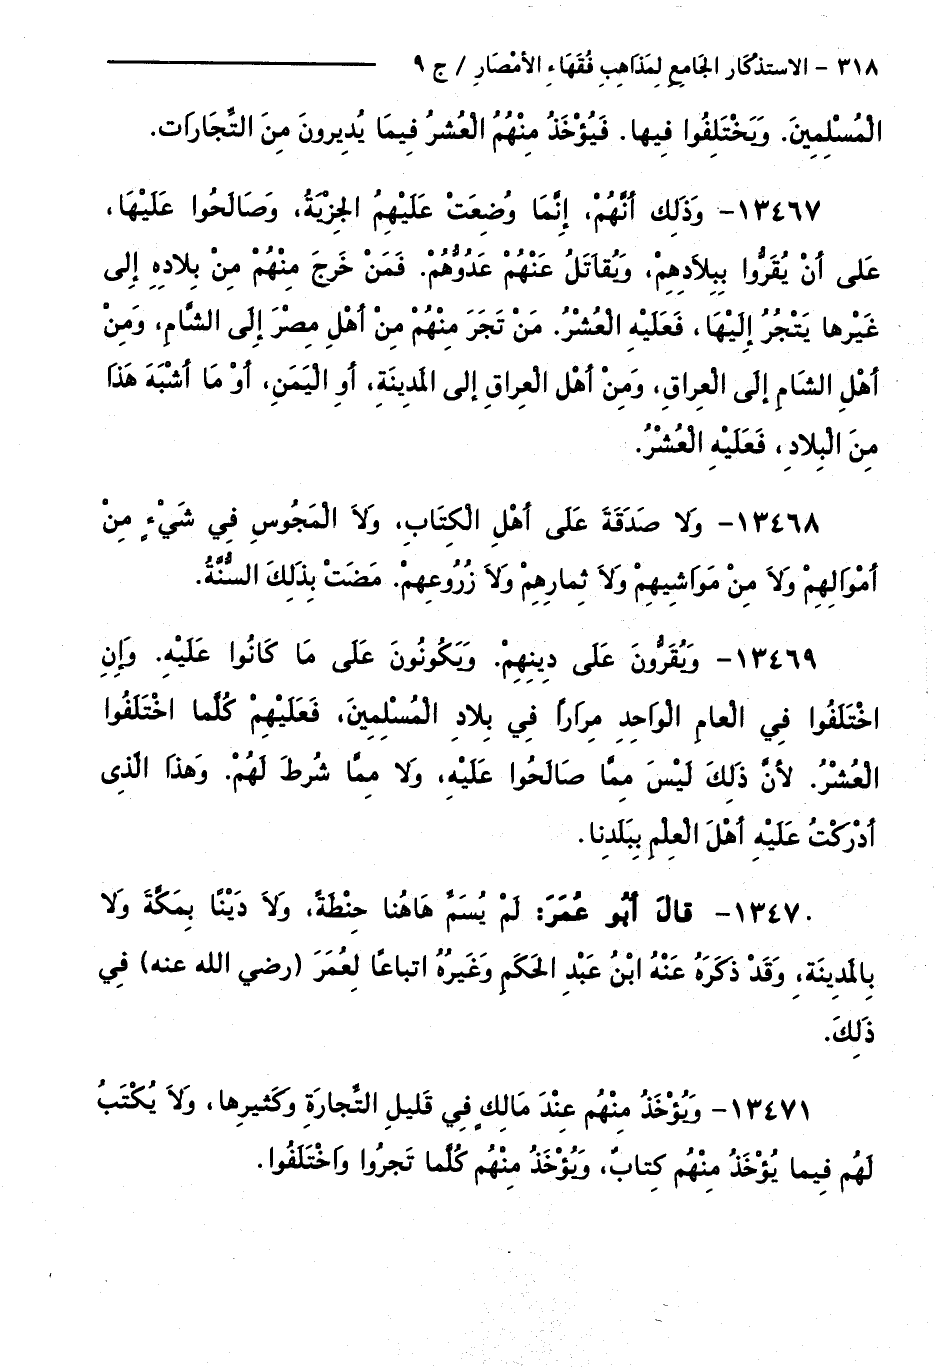 ٣١٨ - الاستذكار الجامع لِمَذَاهِبِ فُقَهَاءِ الأمْصَارِ / ج ٩
الْمُسْلِمِينَ. وَيَخْتَلِفُوا فِيها. فَيُؤْخَذُ مِنْهُمُ الْعُشرُ فِيمَا يُدِيرونَ مِنَ التِّجَارَات.
١٣٤٦٧- وَذَلِك أنَّهُمْ، إِنَّمَا وُضِعَتْ عَلَيْهِمُ الجِزْيَةُ، وَصَالَحُوا عَلَيْهَا،
عَلى أنْ يُقَرُّوا بِبِلاَدِهِمْ، وَيُقاتَلُ عَنْهُمْ عَدُوُّهُمْ. فَمَنْ خَرجَ مِنْهُمْ مِنْ بِلادِهِ إِلى
غَيْرها يَتْجُرُ إِلَيْهَا، فَعَلَيْهِ الْعُشْرُ. مَنْ تَجَرَ مِنْهُمْ مِنْ أهْلِ مِصْرَ إِلَى الشَّامِ، وَمِنْ
أهْلِ الشَامِ إِلَى الْعِراقِ، وَمِنْ أهْل الْعراقِ إلى المَدِينَةِ، أوِ الْيَمَنِ، أوْ مَا أشْبَهَ هَذَا
مِنَ الْبِلادِ، فَعَلَيْهِ الْعُشْرُ.
١٣٤٦٨- وَلا صَدَقَةَ عَلَى أهْلِ الْكِتَابِ، وَلاَ الْمَجُوسِ فِي شَيْءٍ مِنْ
أمْوَالِهِمْ وَلاَ مِنْ مَوَاشِيهِمْ وَلاَ ثِمارِهِمْ وَلاَ زُرُوعِهِمْ. مَضَتْ بِذَلِكَ السُنَّةُ.
١٣٤٦٩- وَيُقَرُّونَ عَلَى دِينِهِمْ. وَيَكُونُونَ عَلَى مَا كَانُوا عَلَيْهِ. وَإِنِ
اخْتَلَفُوا فِي الْعامِ الْوَاحِدِ مِرَاراً فِي بِلادِ الْمُسْلِمِينَ، فَعَلَيْهِمْ كُلَّما اخْتَلَفُوا
الْعُشْرُ. لأنَّ ذَلِكَ لَيْسَ مِمَّا صَالَحُوا عَلَيْهِ، وَلا مِمَّا شُرِطَ لَهُمْ. وَهذا الَّذِى
أدْرَكْتُ عَلَيْهِ أهْلَ الْعِلْمِ بِبَلَدِنا.
١٣٤٧٠- قالَ أَبُو عُمَرَ: لَمْ يُسَمِّ هَاهُنا حِنْطَةً، وَلاَ دَيْنًا بِمَكَّةَ وَلا
بِالمَدِينَةِ، وَقَدْ ذَكَرَهُ عَنْهُ ابْنُ عَبْدِ الحَكَمِ وَغَيرُهُ اتباعًا لِعُمَرَ (رضي الله عنه) فِي
ذَلِكَ.
١٣٤٧١- وَيُؤْخَذُ مِنْهُم عِنْدَ مَالِكٍ فِي قَليلِ التِّجارَةِ وكَثِيرِها، وَلاَ يُكْتَبُ
لَهُم فِيما يُؤْخَذُ مِنْهُم كِتابٌ، وَيُؤْخَذُ مِنْهُم كُلَّما تَجرُوا وَاخْتَلَفُوا.